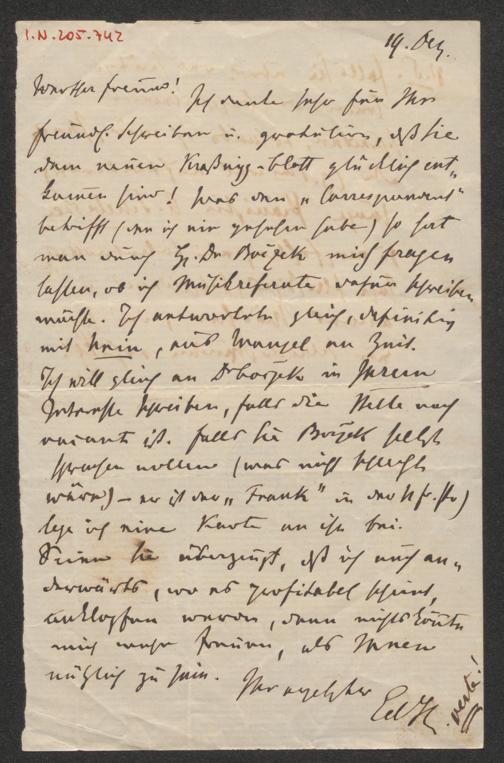 I.N. 205.742
19. Dez.
Werther Freund!
Ich danke sehr für Ihr
freundl. Schreiben u. gratulire, dß Sie
dem neuen -blatt glücklich ent„
kommen sind! Was den „Correspondent“
betrifft (den ich nie gesehen habe) so hat
man durch H. Dr mich fragen
lassen, ob ich Musikreferate dafür schreiben
möchte. Ich antwortete gleich, definitiv
mit Nein, aus Mangel an Zeit.
Ich will gleich an Dr in Ihrem
Interesse schreiben, falls die Stelle noch
vacant ist. Falls Sie selbst
sprechen wollen (was nicht schlecht
wäre) – er ist der „Frank“ in der N. fr. Pr)
lege ich eine Karte an ihn bei.
Seien Sie überzeugt, dß ich auch an„
derwärts, wo es profitabel scheint,
anklopfen werde, denn nichts könnte
mich mehr freuen, als Ihnen
nützlich zu sein.
Ihr ergebener
Ed H.
verte!